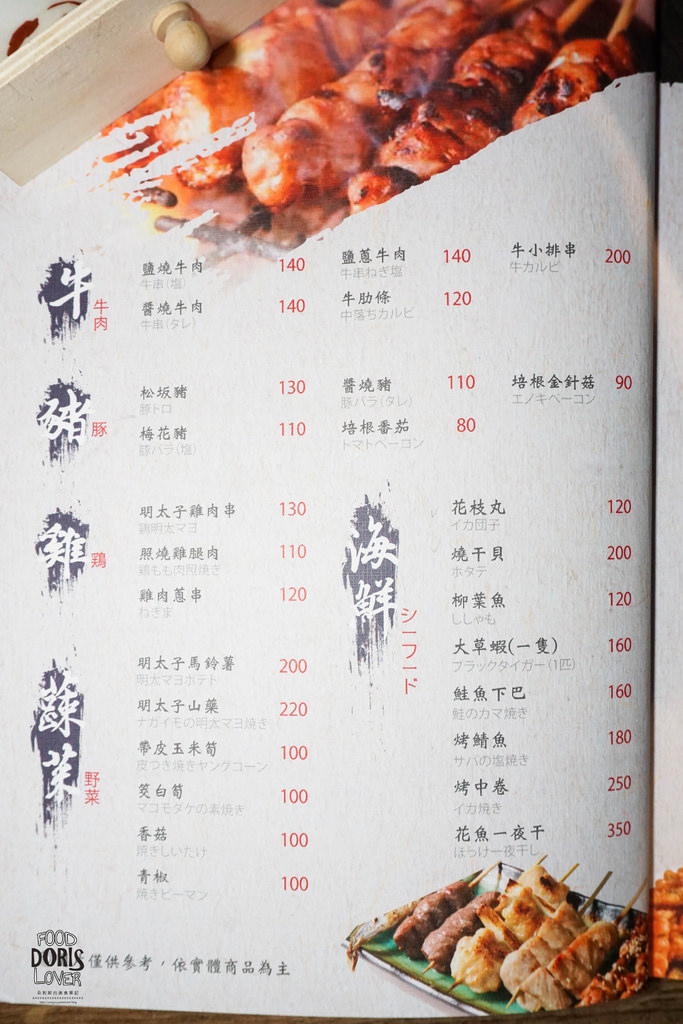 牛
牛肉
鹽燒牛肉 140
牛串(塩)
醬燒牛肉 140
牛串(タレ)
鹽蔥牛肉 140
牛串ねぎ塩
牛肋條 120
中落ちカルビ
牛小排串 200
牛カルビ
豬
豚
松坂豬 130
豚トロ
梅花豬 110
豚バラ(塩)
醬燒豬 110
豚バラ(タレ)
培根番茄 80
トマトベーコン
培根金針菇 90
エノキベーコン
雞
鶏
明太子雞肉串 130
鶏明太マヨ
照燒雞腿肉 110
鶏もも肉照焼き
雞肉蔥串 120
ねぎま
蔬菜
野菜
明太子馬鈴薯 200
明太マヨポテト
明太子山藥 220
ナガイモの明太マヨ焼き
帶皮玉米筍 100
皮つき焼きヤングコーン
筊白筍 100
マコモダケの素焼き
香菇 100
焼きしいたけ
青椒 100
焼きピーマン
海鮮
シーフード
花枝丸 120
イカ団子
燒干貝 200
ホタテ
柳葉魚 120
ししゃも
大草蝦(一隻) 160
ブラックタイガー(1匹)
鮭魚下巴 160
鮭のカマ焼き
烤鯖魚 180
サバの塩焼き
烤中卷 250
イカ焼き
花魚一夜干 350
ほっけ一夜干し
僅供參考，依實體商品為主
FOOD
DORIS
LOVER